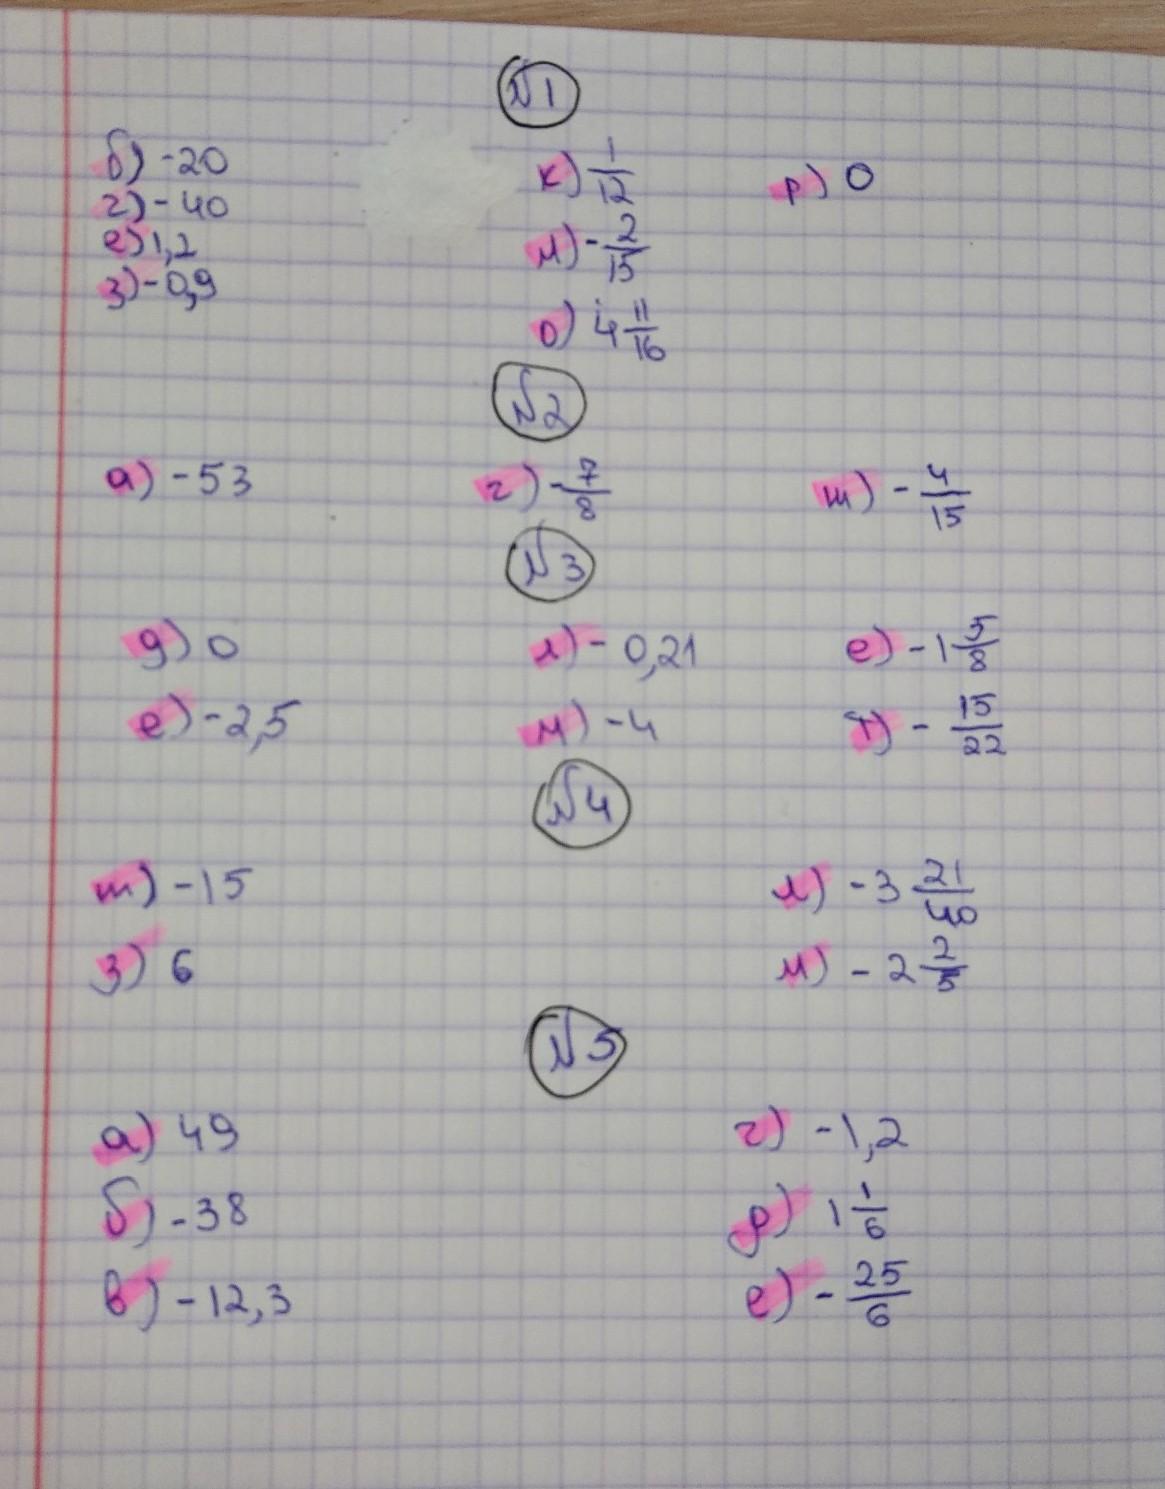 №1
б) -20
г) -40
е) 1,2
з) -0,9
к) 1/12
м) -2/15
о) 4 11/16
р) 0
№2
а) -53
г) -7/8
ш) -4/15
№3
д) 0
е) -2,5
л) -0,21
м) -4
е) -1 5/8
т) -15/22
№4
ж) -15
з) 6
л) -3 21/40
м) -2 2/5
№5
а) 49
б) -38
в) -12,3
г) -1,2
д) 1 1/6
е) -25/6